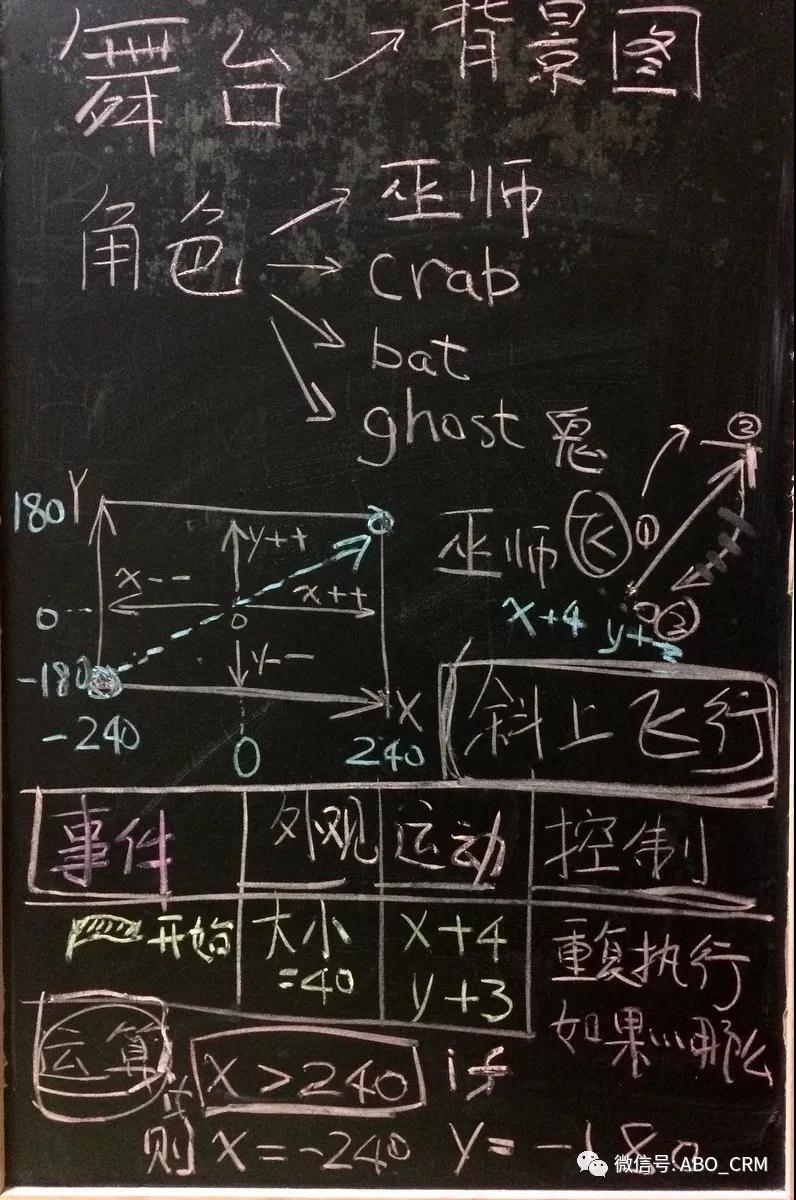 舞台 → 背景图
角色 → 巫师
→ crab
→ bat
→ ghost 鬼
②
180 Y
y++
巫师 飞 ①
x-- x++
0 0
③
x+4 y+3
y--
-180
X
-240 0 240
斜上飞行
事件 外观 运动 控制
开始 大小 =40 x+4 y+3 重复执行
如果...那么
运算 x>240 if
则 x=-240 y=-180
微信号: ABO_CRM